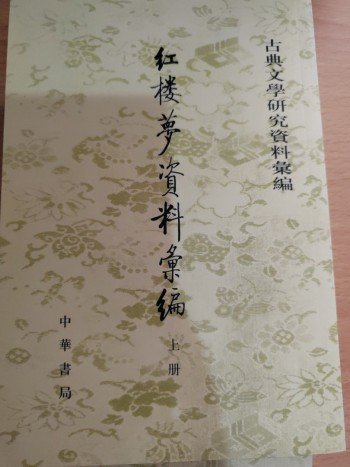 古典文學研究資料彙編
红楼夢資料彙编
上册
中華書局